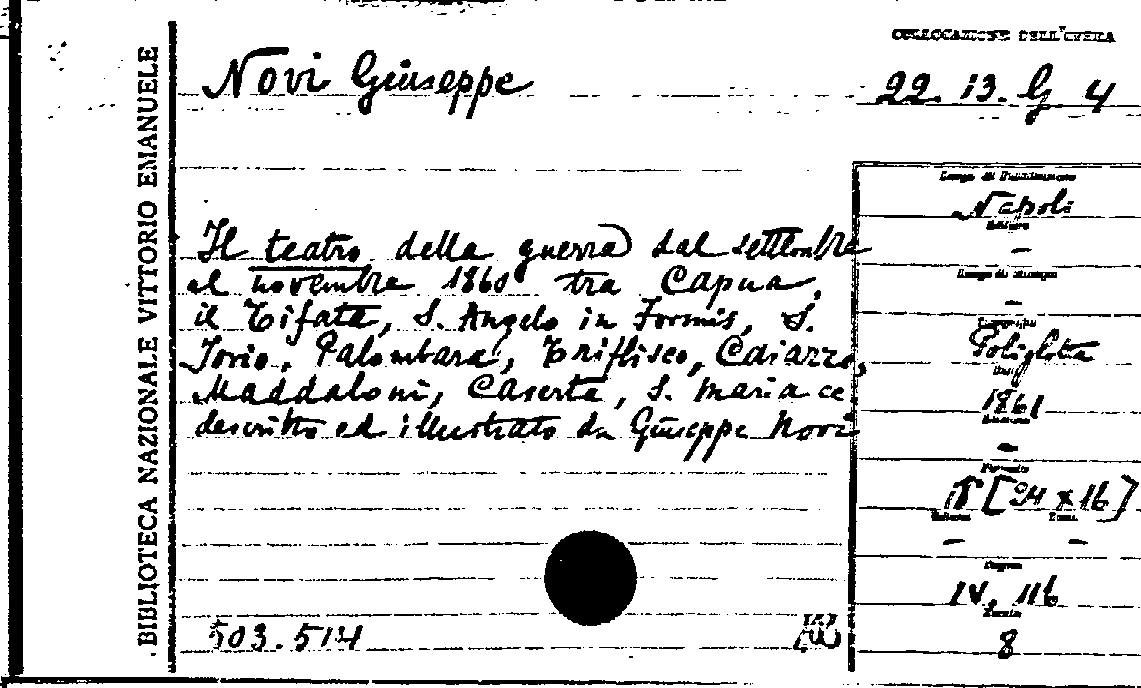 BIBLIOTECA NAZIONALE VITTORIO EMANUELE
COLLOCAZIONE DELL'OPERA
Novi Giuseppe
22. 13. G 4
Il teatro della guerra dal settembre
al novembre 1860 tra Capua,
il Tifata, S. Angelo in Formis, S.
Jorio, Palombara, Triflisco, Caiazzo,
Maddaloni, Caserta, S. Maria ec
descritto ed illustrato da Giuseppe Novi
503.514
Luogo di Pubblicazione
Napoli
Editore
—
Luogo di stampa
—
Poliglotta
1861
—
Formato
[24 x 16]
— —
Pagine
IV, 116
8